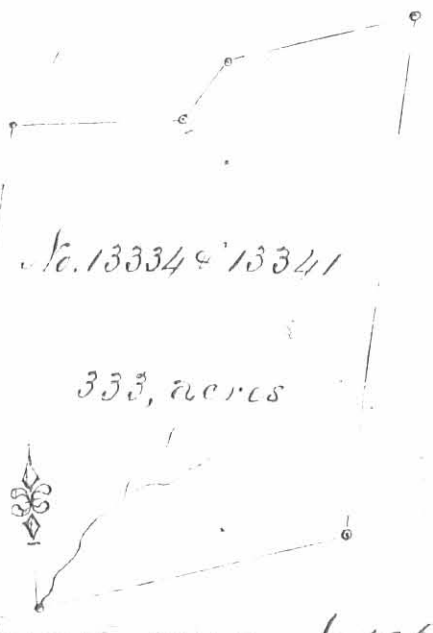 No. 13334 & 13341
333, acres